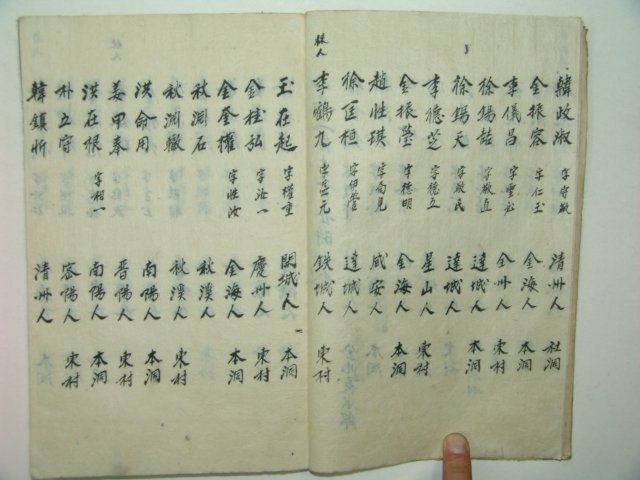 韓政淑 字守敏 清州人 社洞
金振容 字仁玉 金海人 本洞
李儀昌 字雲 全州人 東村
徐錫喆 字敬直 達城人 本洞
徐錫天 字敬民 達城人 本洞
李德芝 字德立 星山人 東村
金振瑩 字德明 金海人 本洞
趙性琪 字南見 咸安人
徐匡桓 字伊 達城人
校人
李鶴九 字 元 鉄城人 東村
玉在起 字權重 城人 本洞
金桂弘 字汝一 慶州人 東村
金奎權 字性汝 金海人 本洞
秋淵石 秋溪人 本洞
秋淵轍 秋溪人 東村
洪命用 南陽人 本洞
姜甲奉 晋陽人 東村
洪在根 字相一 南陽人 本洞
朴立守 密陽人 東村
韓鎮昕 清州人 本洞